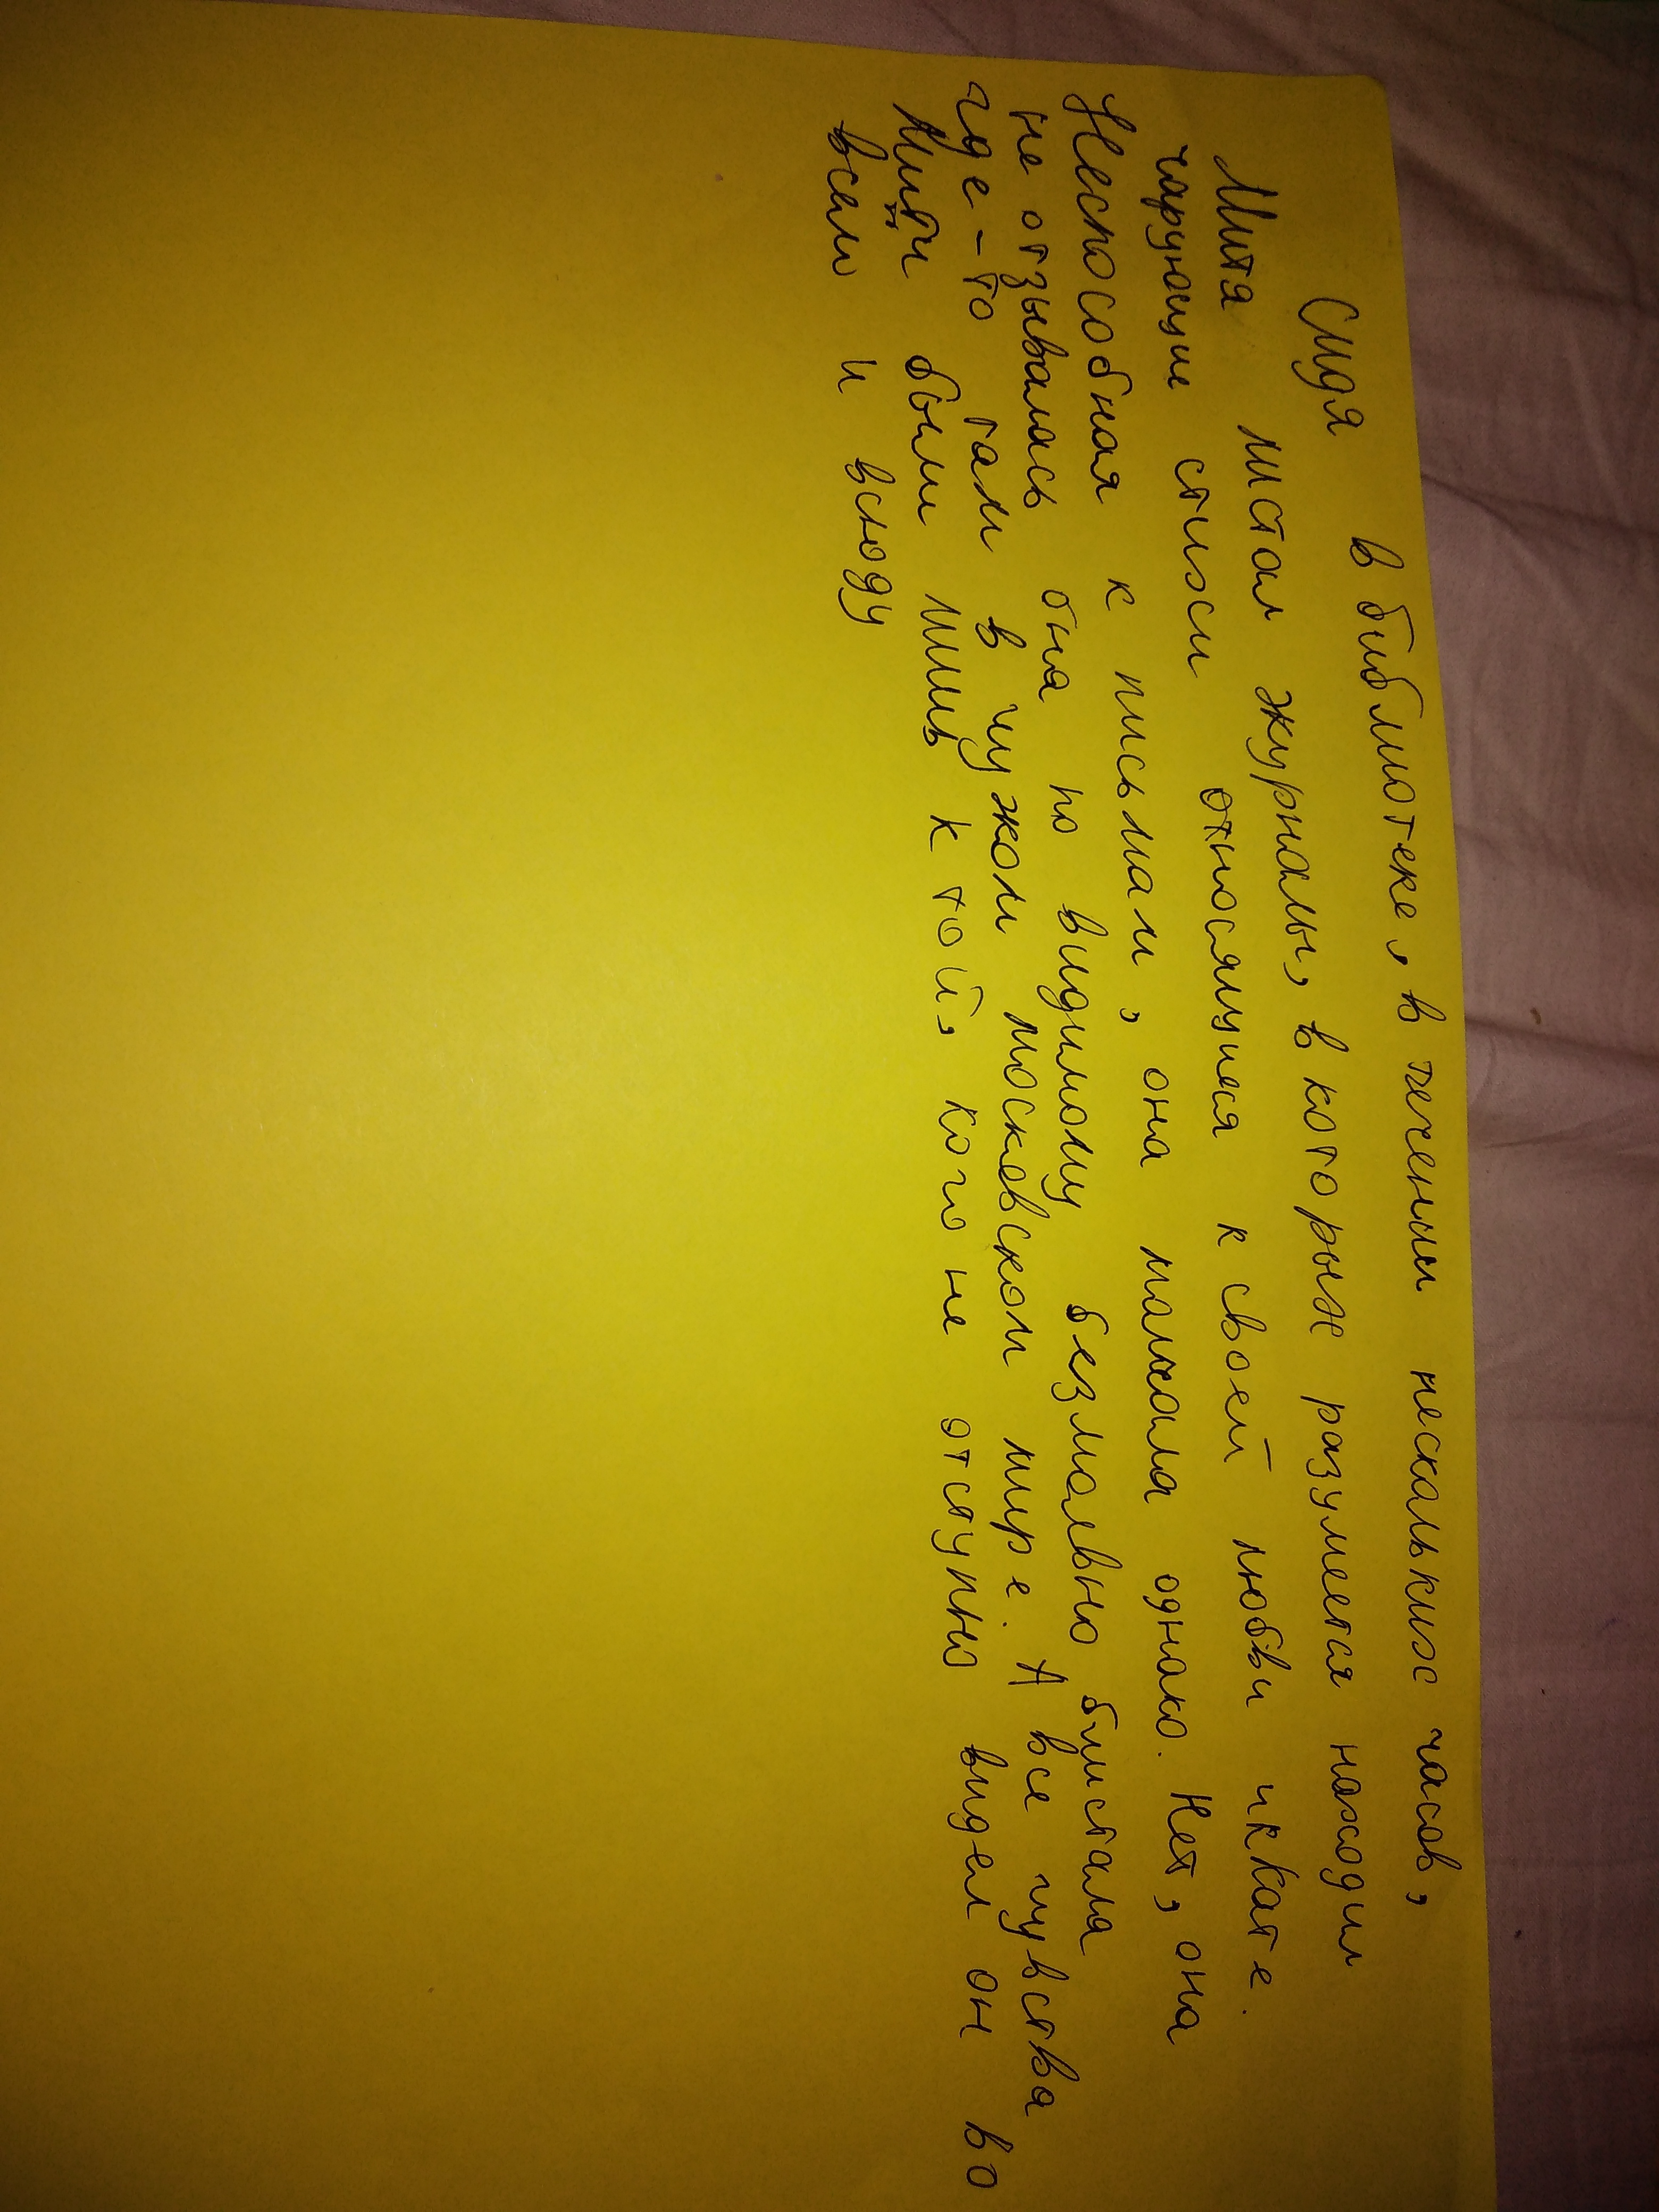 Сидя в библиотеке, в течении нескальких часов,
Митя листал журналы, в которых разумеется находил
чарующие стихи относящиеся к своей любви и Кате.
Неспособная к письмам, она молчала однако. Нет, она
не отзывалась она по видимому безмолвно блистала
где-то там в чужом московском мире. А все чувства
Мити были лишь к той, кого не отступно видел он во
всем и всюду